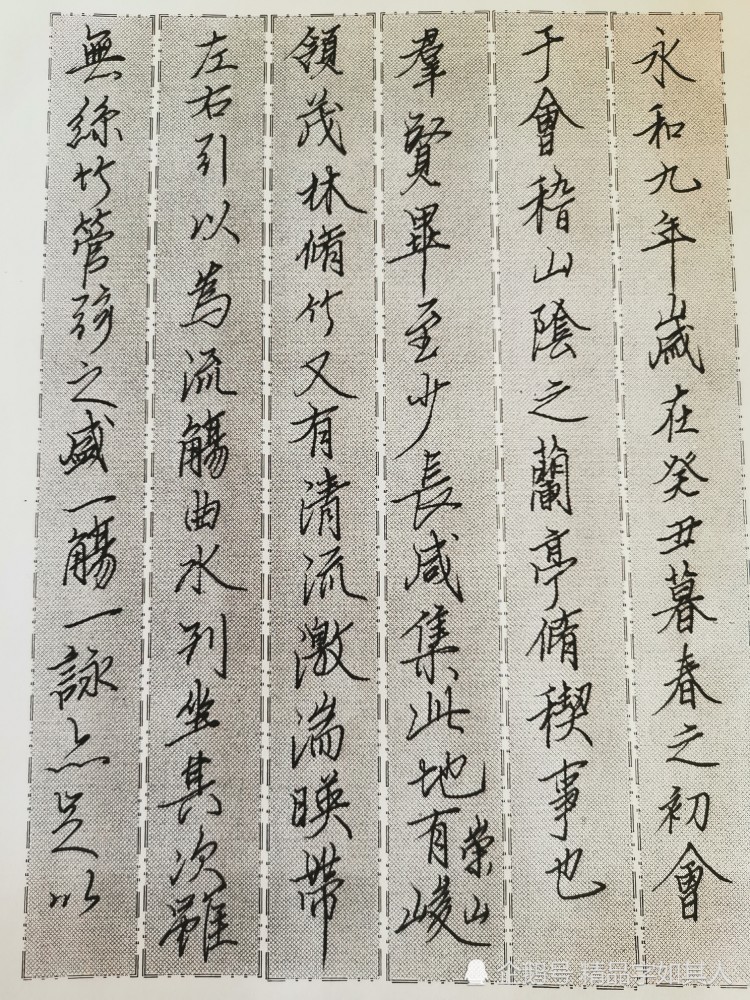 永和九年歲在癸丑暮春之初會
于會稽山陰之蘭亭脩稧事也
羣賢畢至少長咸集此地有崇山峻
領茂林脩竹又有清流激湍暎帶
左右引以為流觴曲水列坐其次雖
無絲竹管弦之盛一觴一詠亦足以
企鹅号 精品字如其人